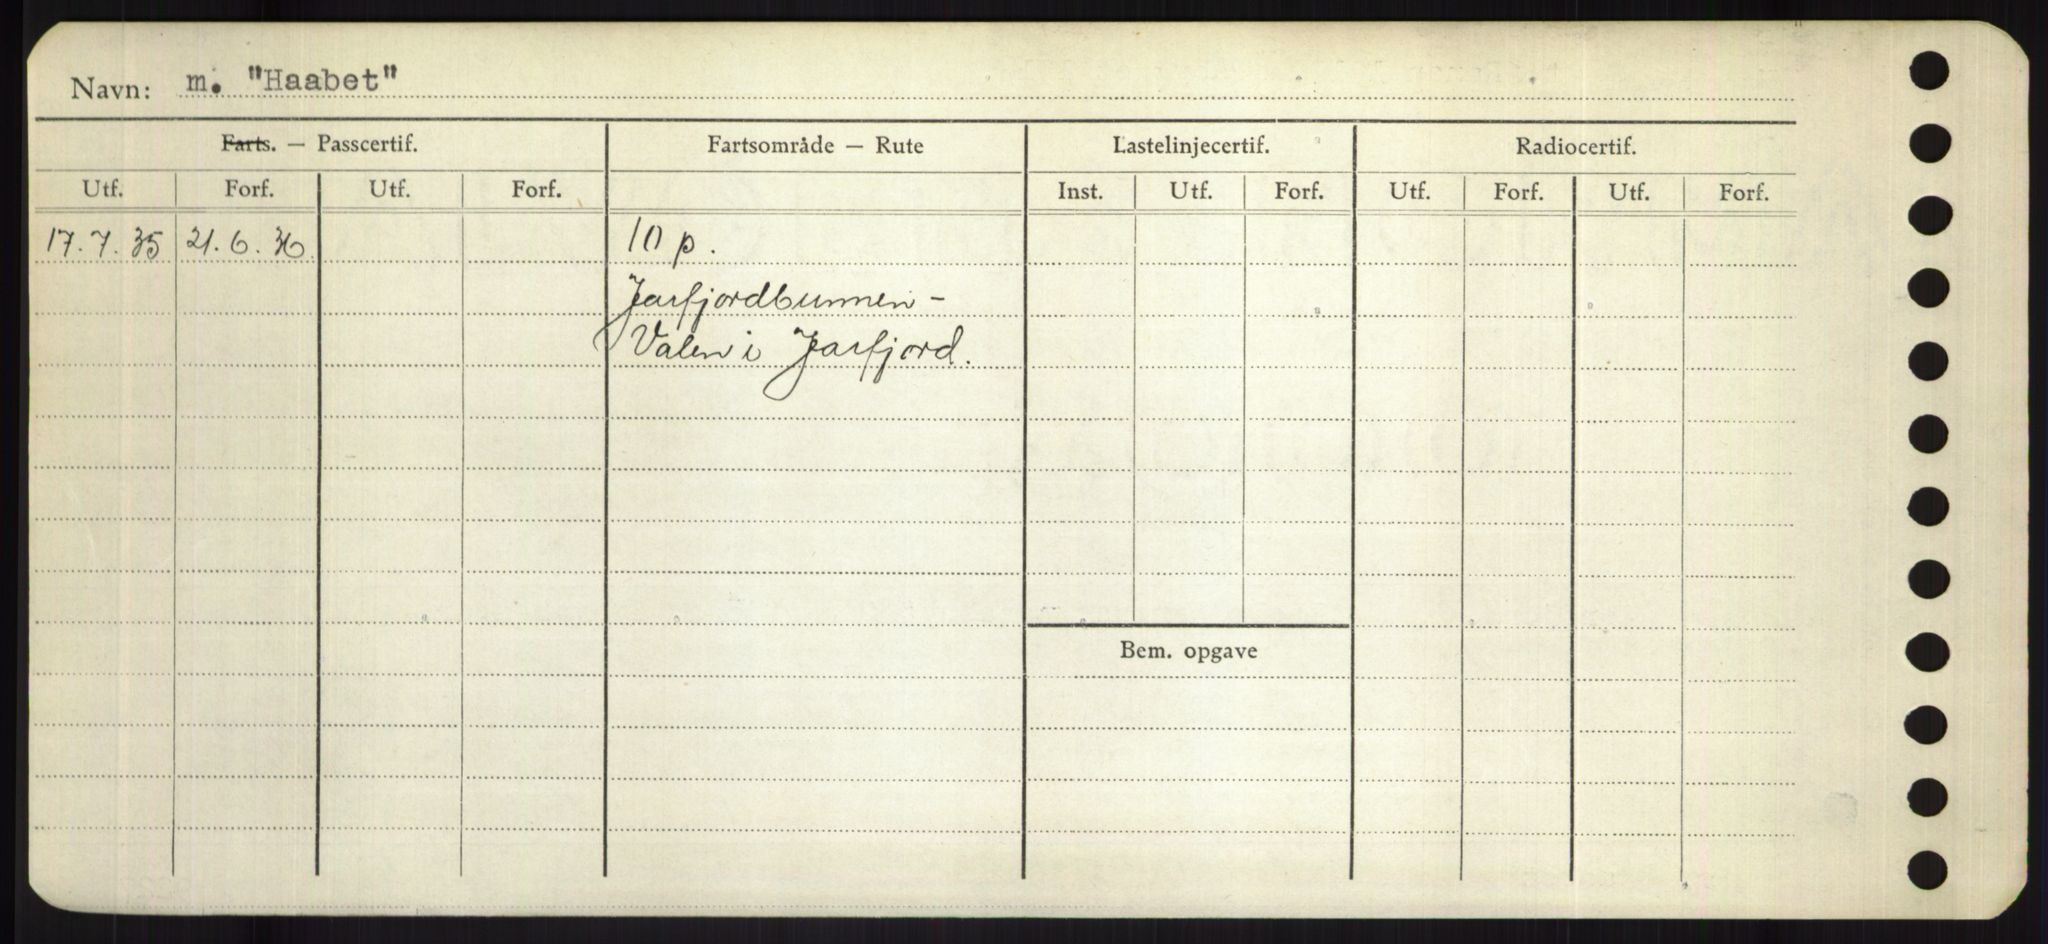 Navn: m. "Haabet"
Farts. — Passcertif. Fartsområde — Rute Lastelinjecertif. Radiocertif.
Utf. Forf. Utf. Forf. Inst. Utf. Forf. Utf. Forf. Utf. Forf.
17.7.35 21.6.36. 10 p.
Jarfjordbunnen -
Valen i Jarfjord.
Bem. opgave